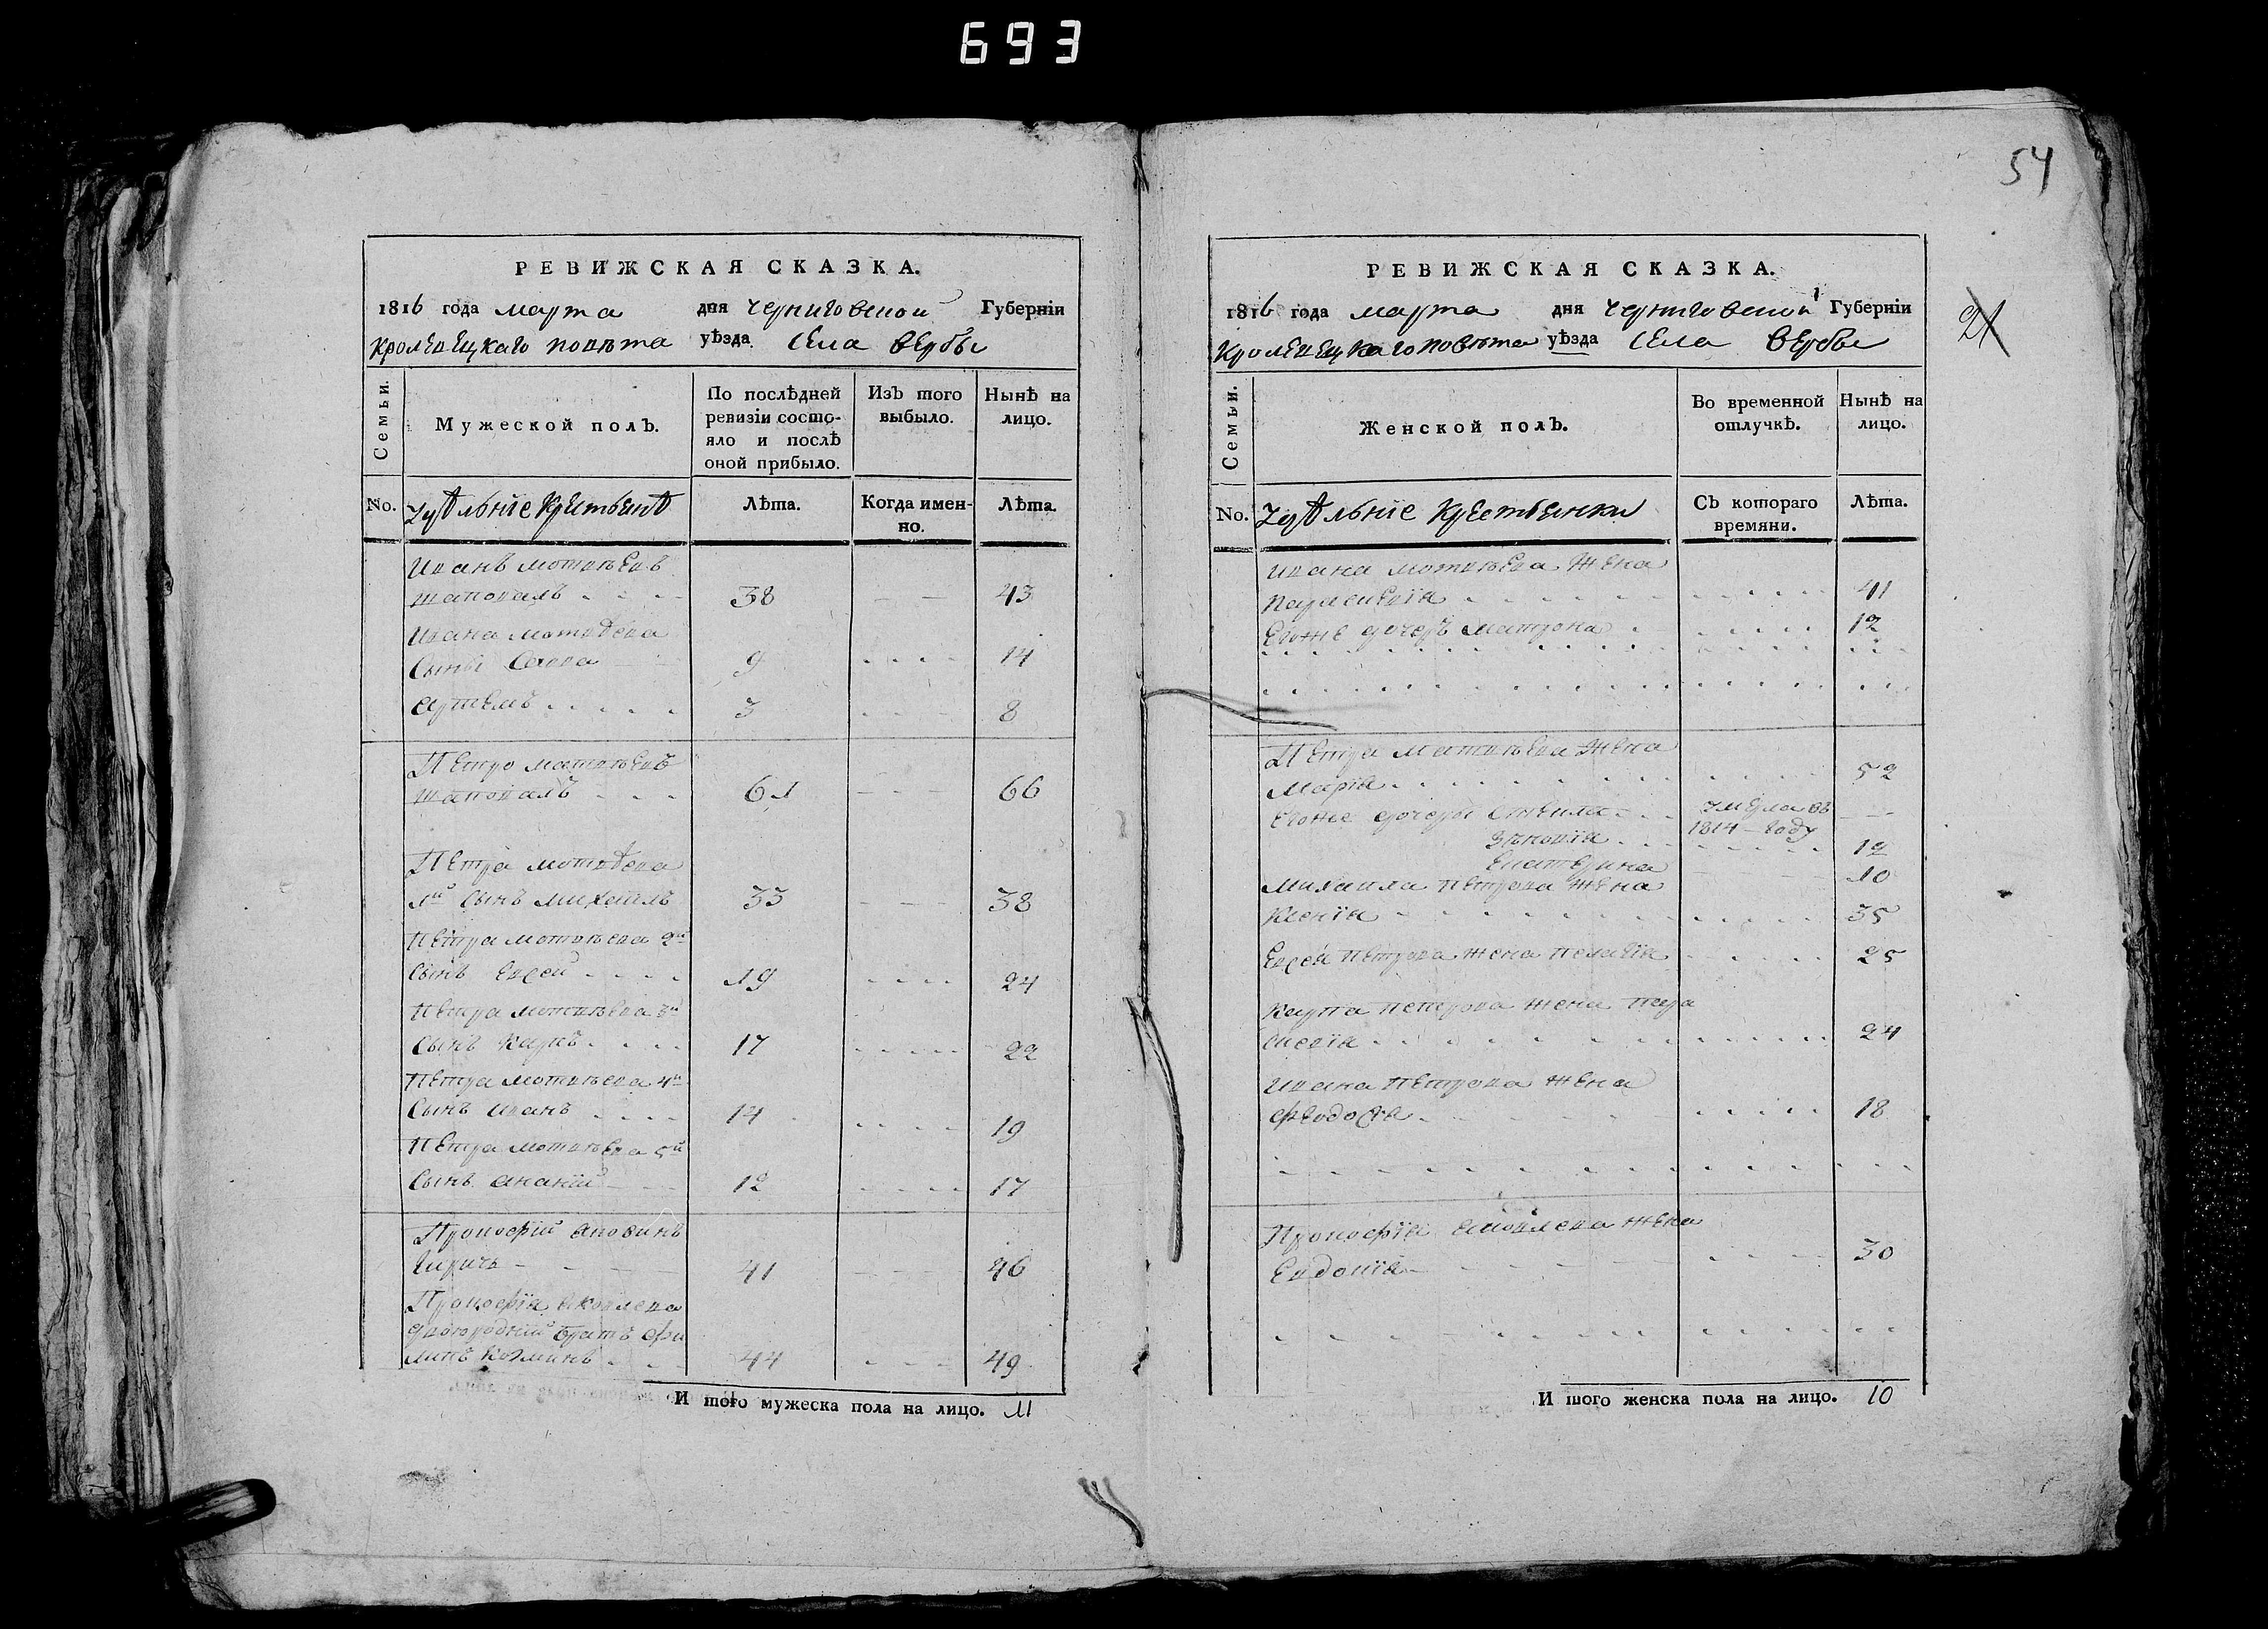 693
54
РЕВИЖСКАЯ СКАЗКА.
1816 года марта дня черниговской Губерніи
кролевецкаго повѣта уѣзда села вербы
Семьи.
Мужеской полъ.
По послѣдней ревизіи состояло и послѣ оной прибыло.
Изъ того выбыло.
Нынѣ на лицо.
No.
Лѣта.
Когда именно.
Лѣта.
Иванъ мотвѣевъ
шаповалъ 38 43
Ивана мотвѣева
Сыны Савва 9 14
артемъ 3 8
Петро матвѣевъ
шаповалъ 61 66
Петра мотвѣева
1й сынъ михаилъ 33 38
Петра мотвѣева 2й
сынъ Евсей 19 24
Петра мотвѣева 3й
сынъ карпъ 17 22
Петра мотвѣева 4й
сынъ иванъ 14 19
Петра мотвѣева 5й
сынъ ананій 12 17
Прокофій
41 46
Прокофія яковлева
двоюродній братъ фи
липъ козминъ 44 49
И того мужеска пола на лицо. 11
РЕВИЖСКАЯ СКАЗКА.
1816 года марта дня черниговской Губерніи
кролевецкаго повѣта уѣзда села вербы
21
Семьи.
Женской полъ.
Во временной отлучкѣ.
Нынѣ на лицо.
No.
крестьянки
Съ котораго времяни.
Лѣта.
Ивана мотвѣева жена
параскевія 41
Егоже дочерь матрона 12
Петра матвѣева жена
Марія 52
Егоже дочери умерла въ
1814 году
зѣновія 12
Екатерина 10
Михаила петрова жена
Ксенія 35
Евсея петрова жена пелагія 25
Карпа петрова жена пара
скевія 24
Ивана петрова жена
феодосія 18
Прокофія яковлева жена
Евдокія 30
И того женска пола на лицо. 10